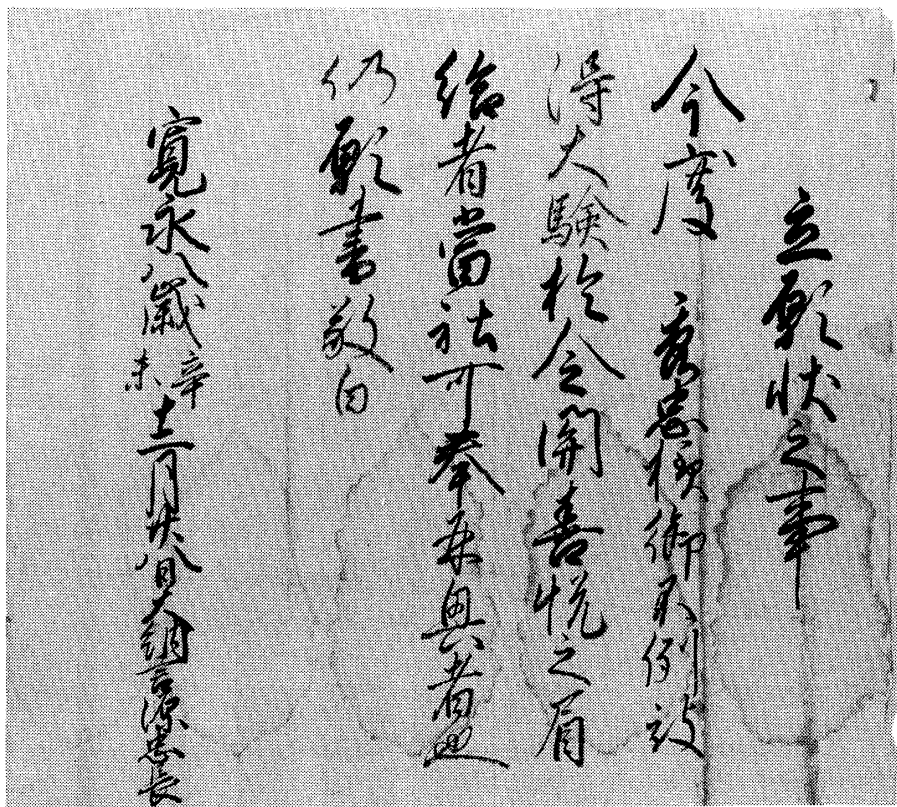 立願状之事
今度　秀忠様御不例被
得大験於令開喜悦之眉
給者當社可奉再興者也
仍願書敬白
寛永八歳辛未十二月廿八日大納言源忠長